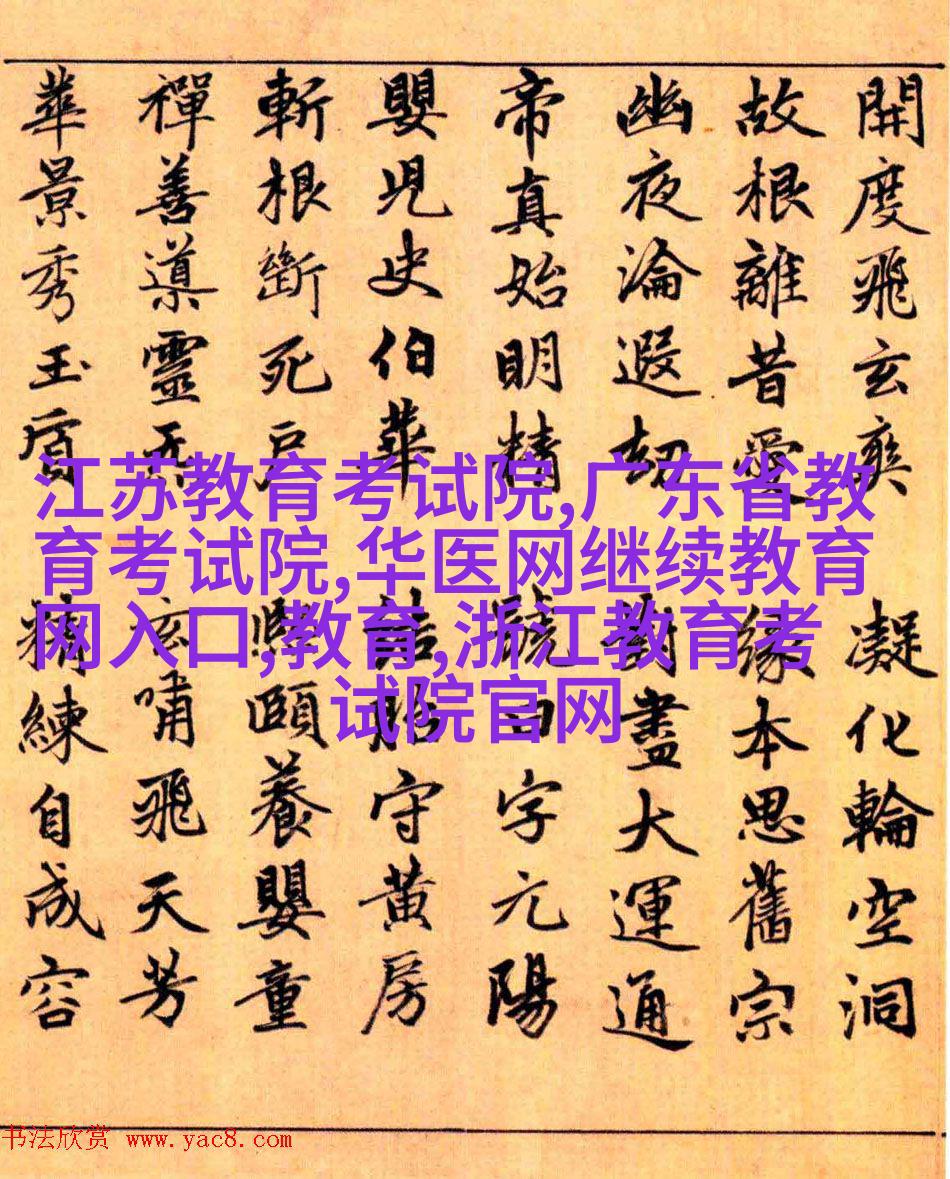 開度飛玄爽 凝化輪空洞
故根離昔愛 緣本思舊宗
幽夜淪遐劫 對盡大運通
帝真始明精 號曰字元陽
嬰兒史伯華 結胎守黃房
斬根斷死戶 熙頤養嬰童
禪善導靈 玄嘯飛天芳
華景秀玉質 精練自成容
江苏教育考试院,广东省教
育考试院,华医网继续教育
网入口,教育,浙江教育考
试院官网
书法欣赏 www.yac8.com